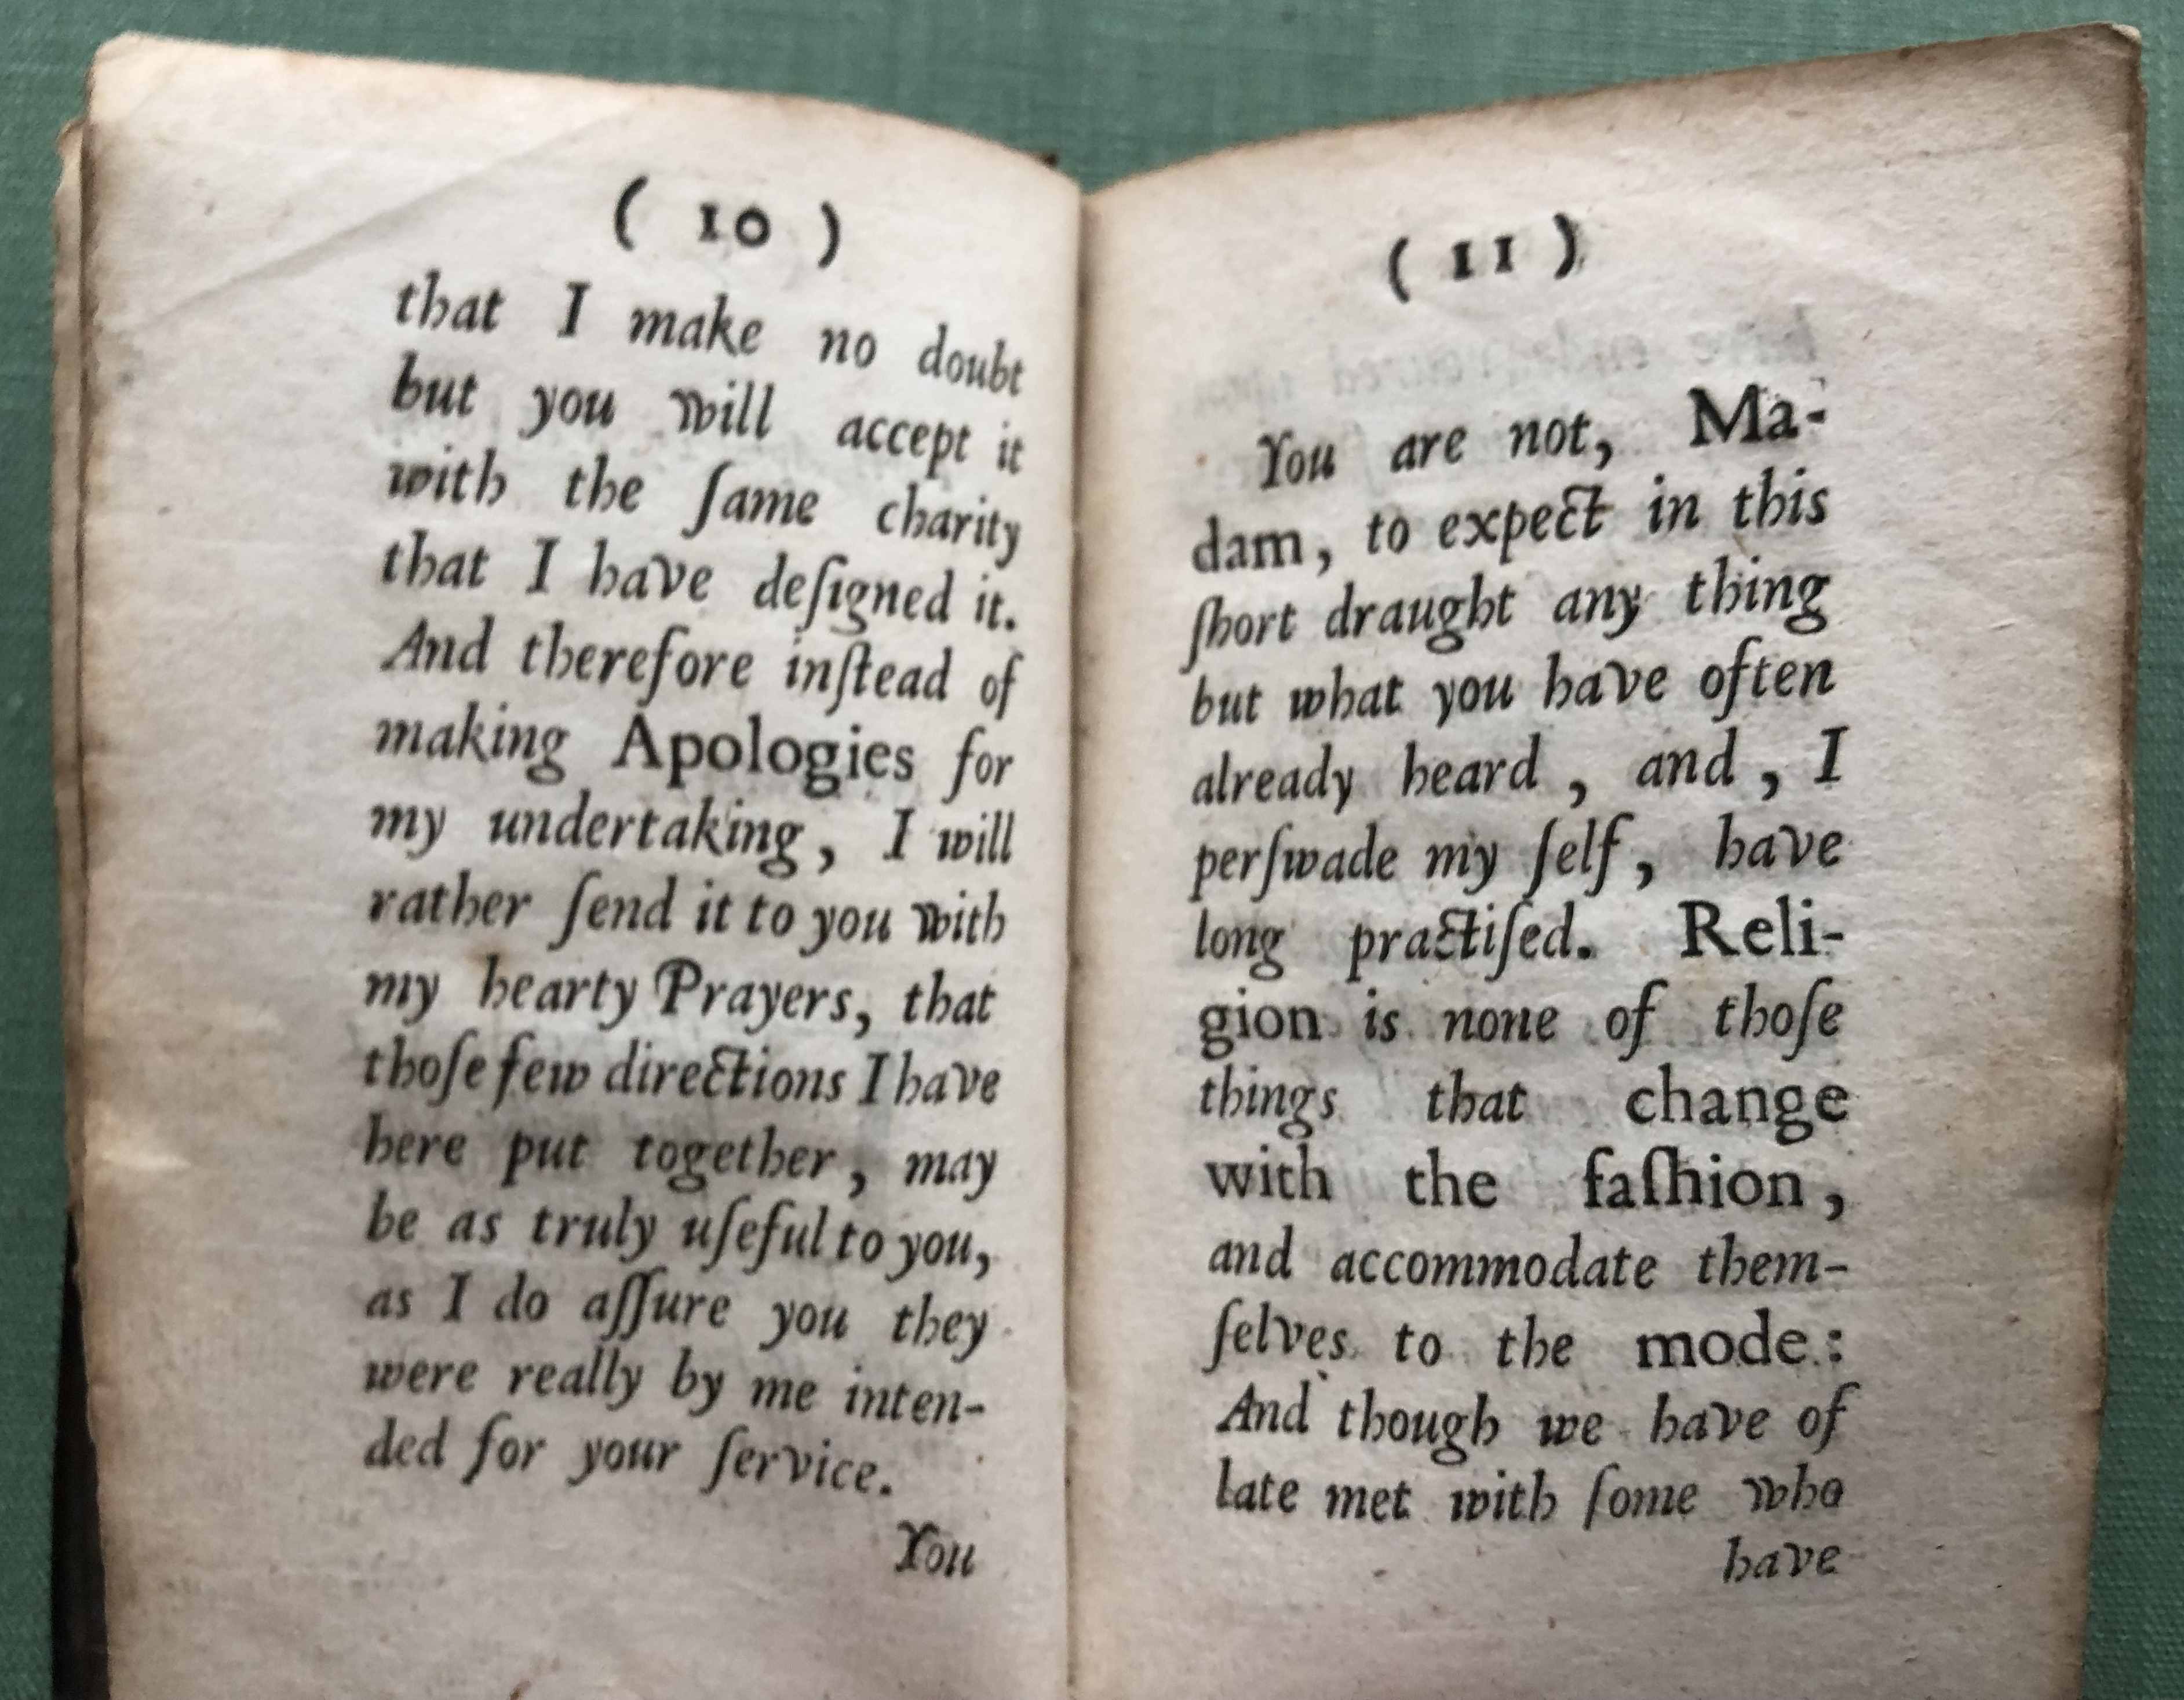 ( 10 )
that I make no doubt
but you will accept it
with the ſame charity
that I have deſigned it.
And therefore inſtead of
making Apologies for
my undertaking, I will
rather ſend it to you with
my hearty Prayers, that
thoſe few directions I have
here put together, may
be as truly uſeful to you,
as I do aſſure you they
were really by me inten-
ded for your ſervice.
You
( 11 )
You are not, Ma-
dam, to expect in this
ſhort draught any thing
but what you have often
already heard, and, I
perſwade my ſelf, have
long practiſed. Reli-
gion is none of thoſe
things that change
with the faſhion,
and accommodate them-
ſelves to the mode:
And though we have of
late met with ſome who
have